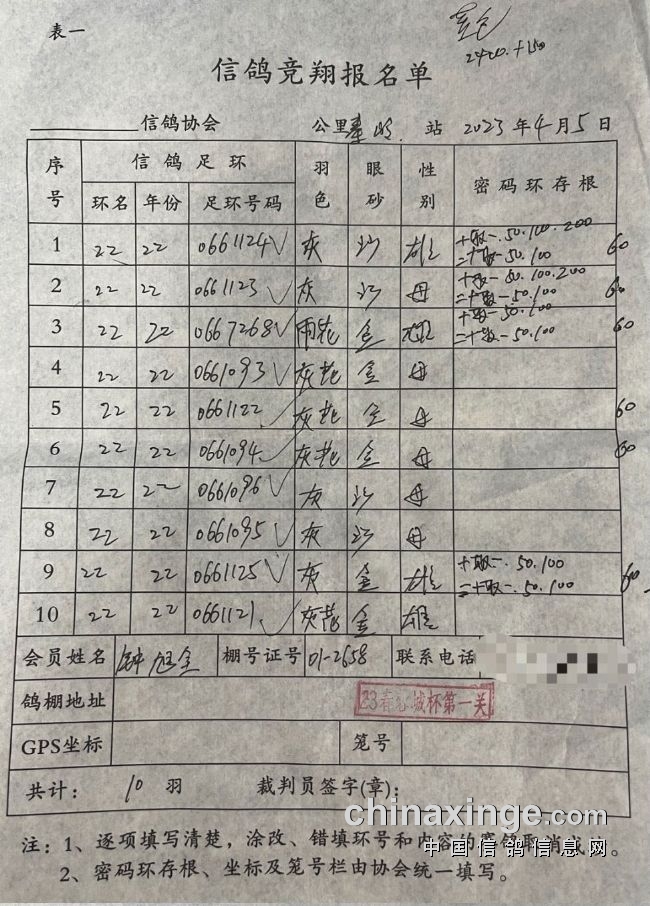 表一
2400.+150
信鸽竞翔报名单
信鸽协会 公里 站 2023年4月5日
序号 信鸽足环 羽色 眼砂 性别 密码环存根
环名 年份 足环号码
1 22 22 0661124√ 灰 沙 雄 十取一.50.100.200 二十取一50.100 60
2 22 22 0661123√ 灰 沙 母 十取一50.100.200 二十取一50.100 60
3 22 22 0667268√ 雨花 金 雄 十取一50.100 二十取一50.100 60
4 22 22 0661093√ 灰花 金 母
5 22 22 0661122√ 灰花 金 母 60
6 22 22 0661094√ 灰花 金 母 60
7 22 22 0661096√ 灰 沙 母
8 22 22 0661095√ 灰 沙 母
9 22 22 0661125√ 灰 金 雄 十取一.50.100 二十取一.50.100 60
10 22 22 0661121√ 灰花 金 雄
会员姓名 钟旭全 棚号证号 01-2658 联系电话
鸽棚地址 23春 城杯第一关
GPS坐标 笼号
共计：10羽 裁判员签字(章)：
chinaxinge.com
中国信鸽信息网
注：1、逐项填写清楚，涂改、错填环号和内容的赛鸽取消成
2、密码环存根、坐标及笼号栏由协会统一填写。